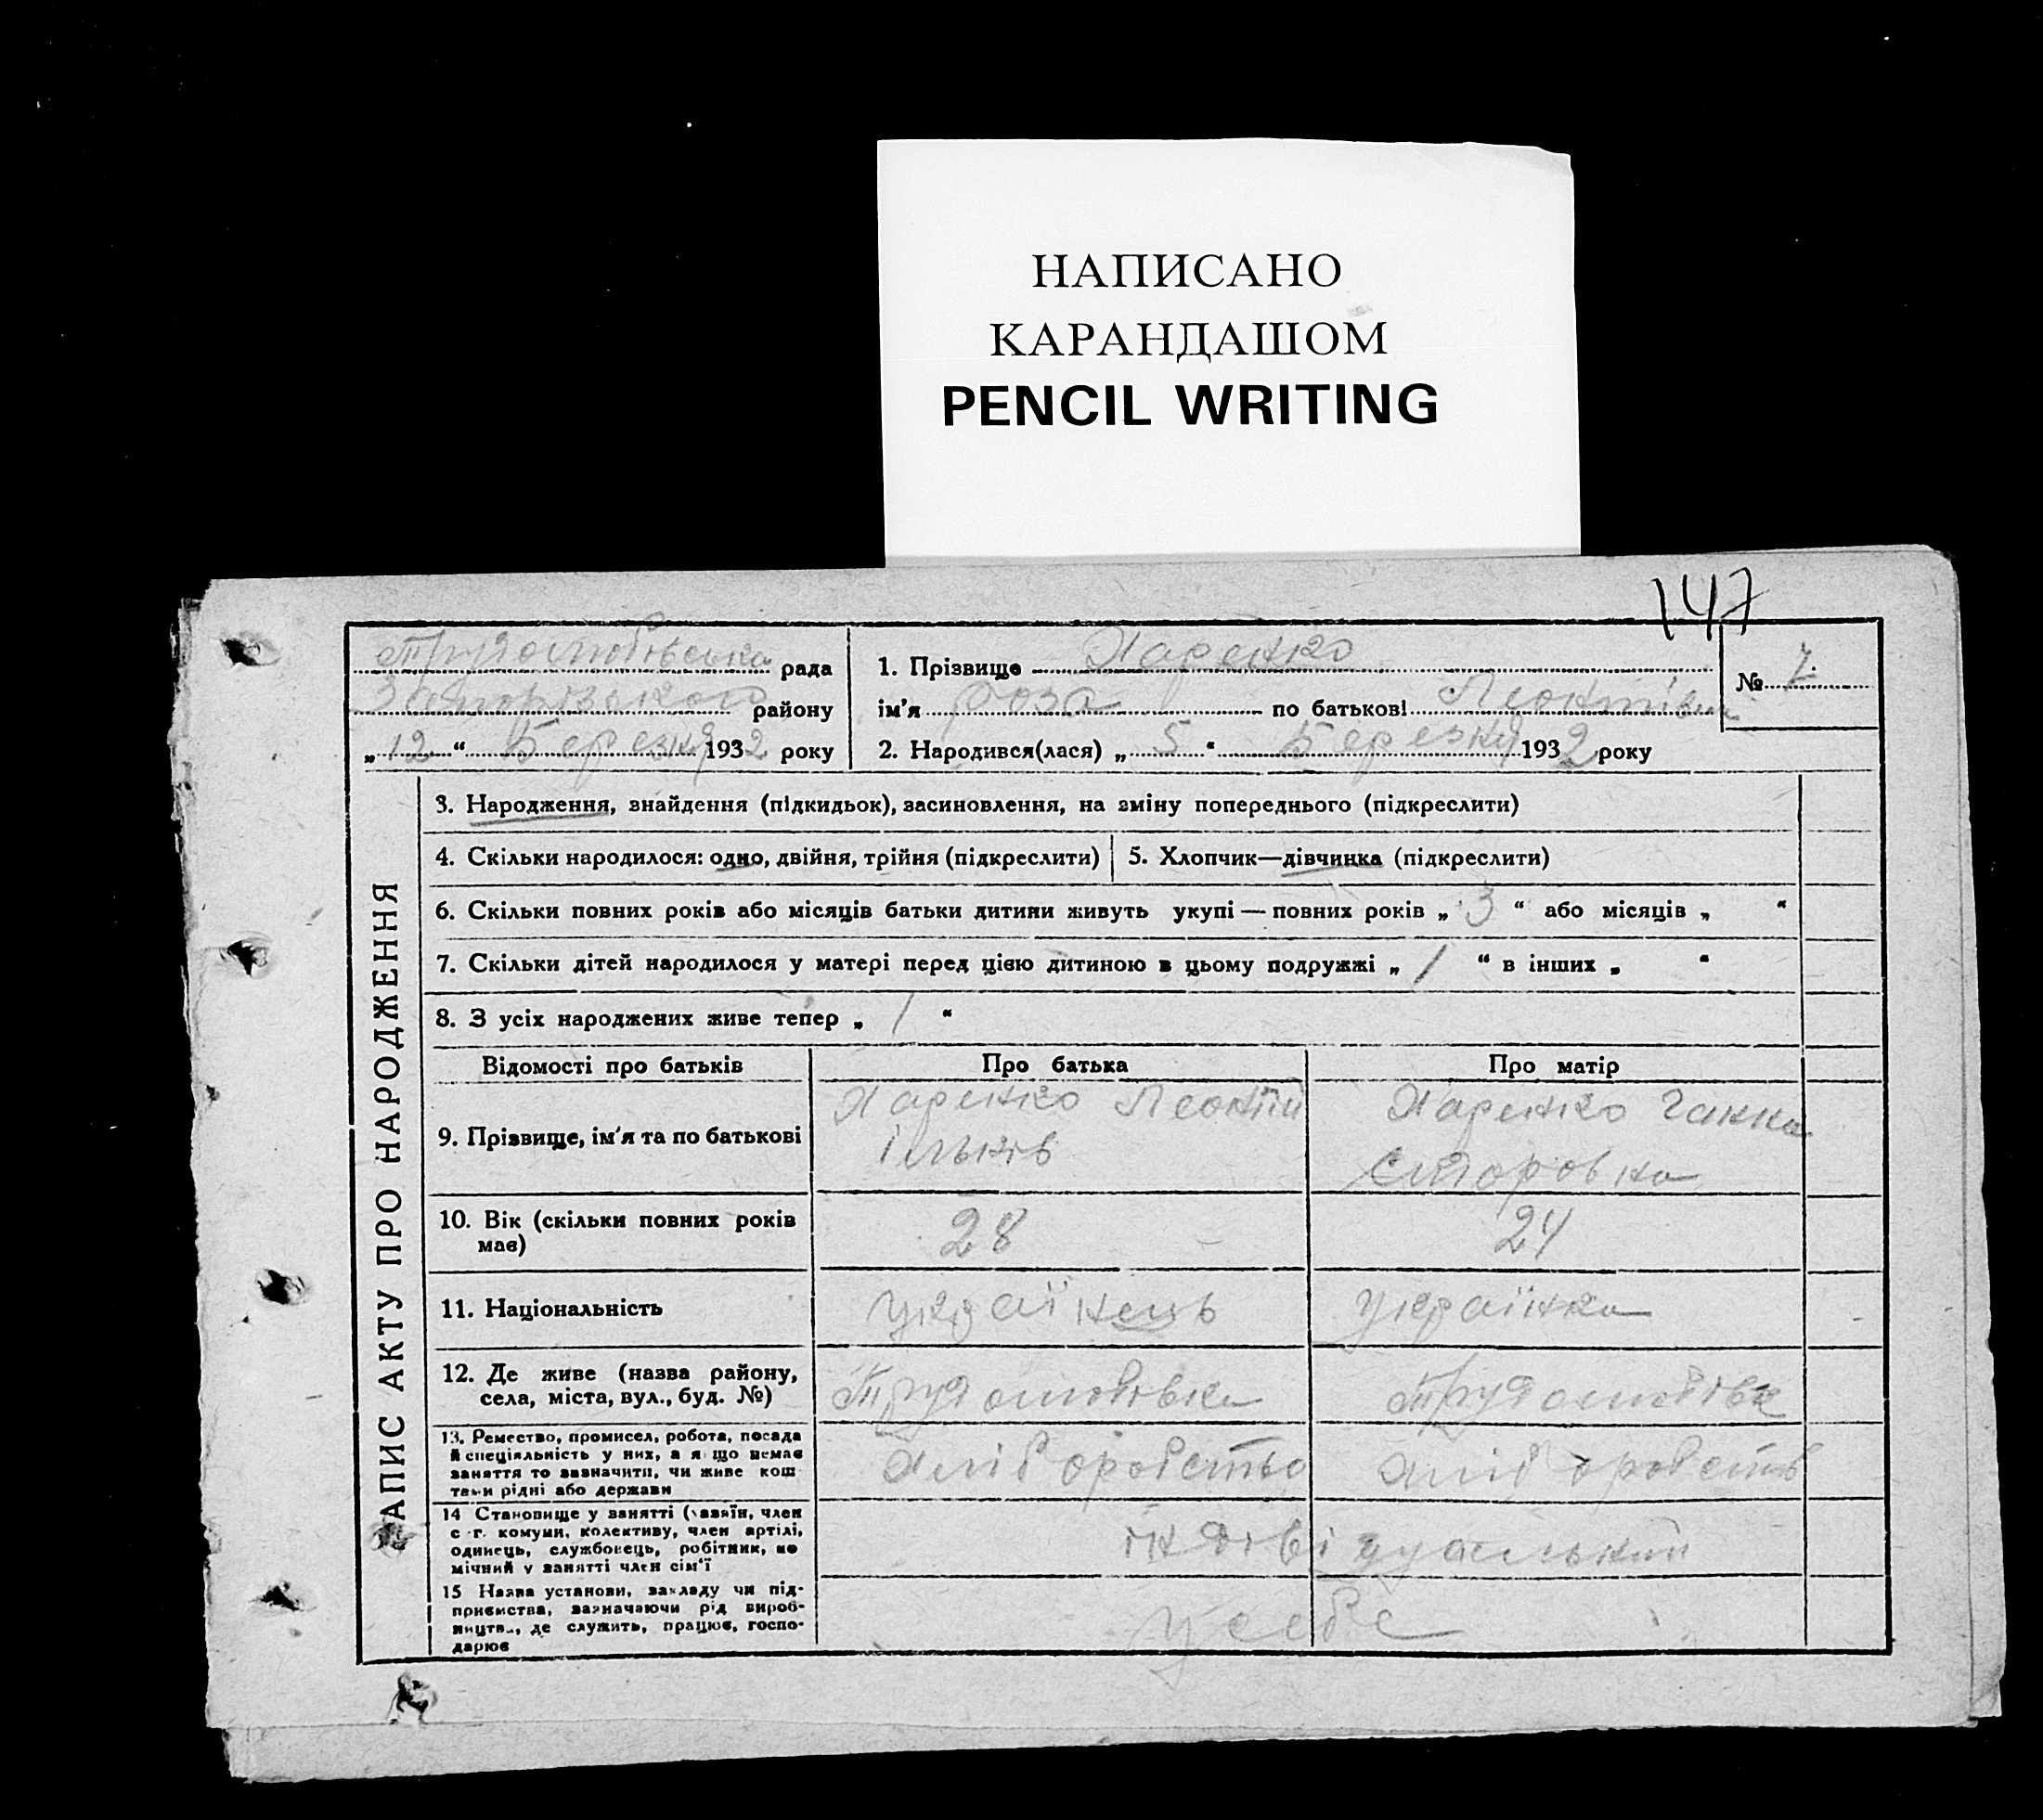 НАПИСАНО
КАРАНДАШОМ
PENCIL WRITING
147
Трудолюбівська рада
Запорізького району
„12“ Березня 1932 року
1. Прізвище Харенко
ім'я Роза по батькові Леонтівна
№ 7
2. Народився(лася) „5“ Березня 1932 року
ЗАПИС АКТУ ПРО НАРОДЖЕННЯ
3. Народження, знайдення (підкидьок), засиновлення, на зміну попереднього (підкреслити)
4. Скільки народилося: одно, двійня, трійня (підкреслити)
5. Хлопчик—дівчинка (підкреслити)
6. Скільки повних років або місяців батьки дитини живуть укупі — повних років „3“ або місяців „ “
7. Скільки дітей народилося у матері перед цією дитиною в цьому подружжі „1“ в інших „ “
8. З усіх народжених живе тепер „1“
Відомості про батьків
Про батька
Про матір
9. Прізвище, ім'я та по батькові
Харенко Леонтій
Харенко Ганна
10. Вік (скільки повних років
має)
28
24
11. Національність
Українець
Українка
12. Де живе (назва району,
села, міста, вул., буд. №)
Трудолюбівка
Трудолюбівк
13. Ремество, промисел, робота, посада
й спеціяльність у них, а якщо немає
заняття то зазначити, чи живе кош
тами рідні або держави
хліборобство
хліборобств
14 Становище у занятті (хазяїн, член
с.-г. комуни, колективу, член артілі,
одинець, службовець, робітник, по
мічний у занятті член сім'ї
індівідуальний
15 Назва установи, закладу чи під-
приємства, зазначаючи рід вироб-
ництва, де служить, працює, госпо-
дарює
у себе